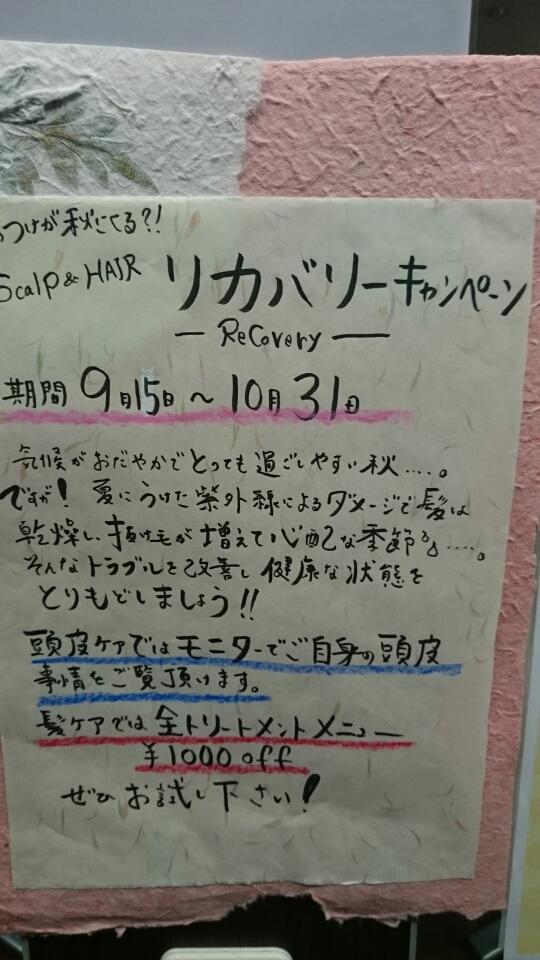 つけが秋にでる?!
Scalp & HAIR リカバリーキャンペーン
— ReCovery —
期間 9月15日 ~ 10月31日
気候がおだやかでとっても過ごしやすい秋....。
ですが! 夏にうけた紫外線によるダメージで髪は
乾燥し、抜け毛が増えて心配な季節も....。
そんなトラブルを改善し健康な状態を
とりもどしましょう!!
頭皮ケアではモニターでご自身の頭皮
事情をご覧頂けます。
髪ケアでは全トリートメントメニュー
¥1000 off
ぜひお試し下さい!